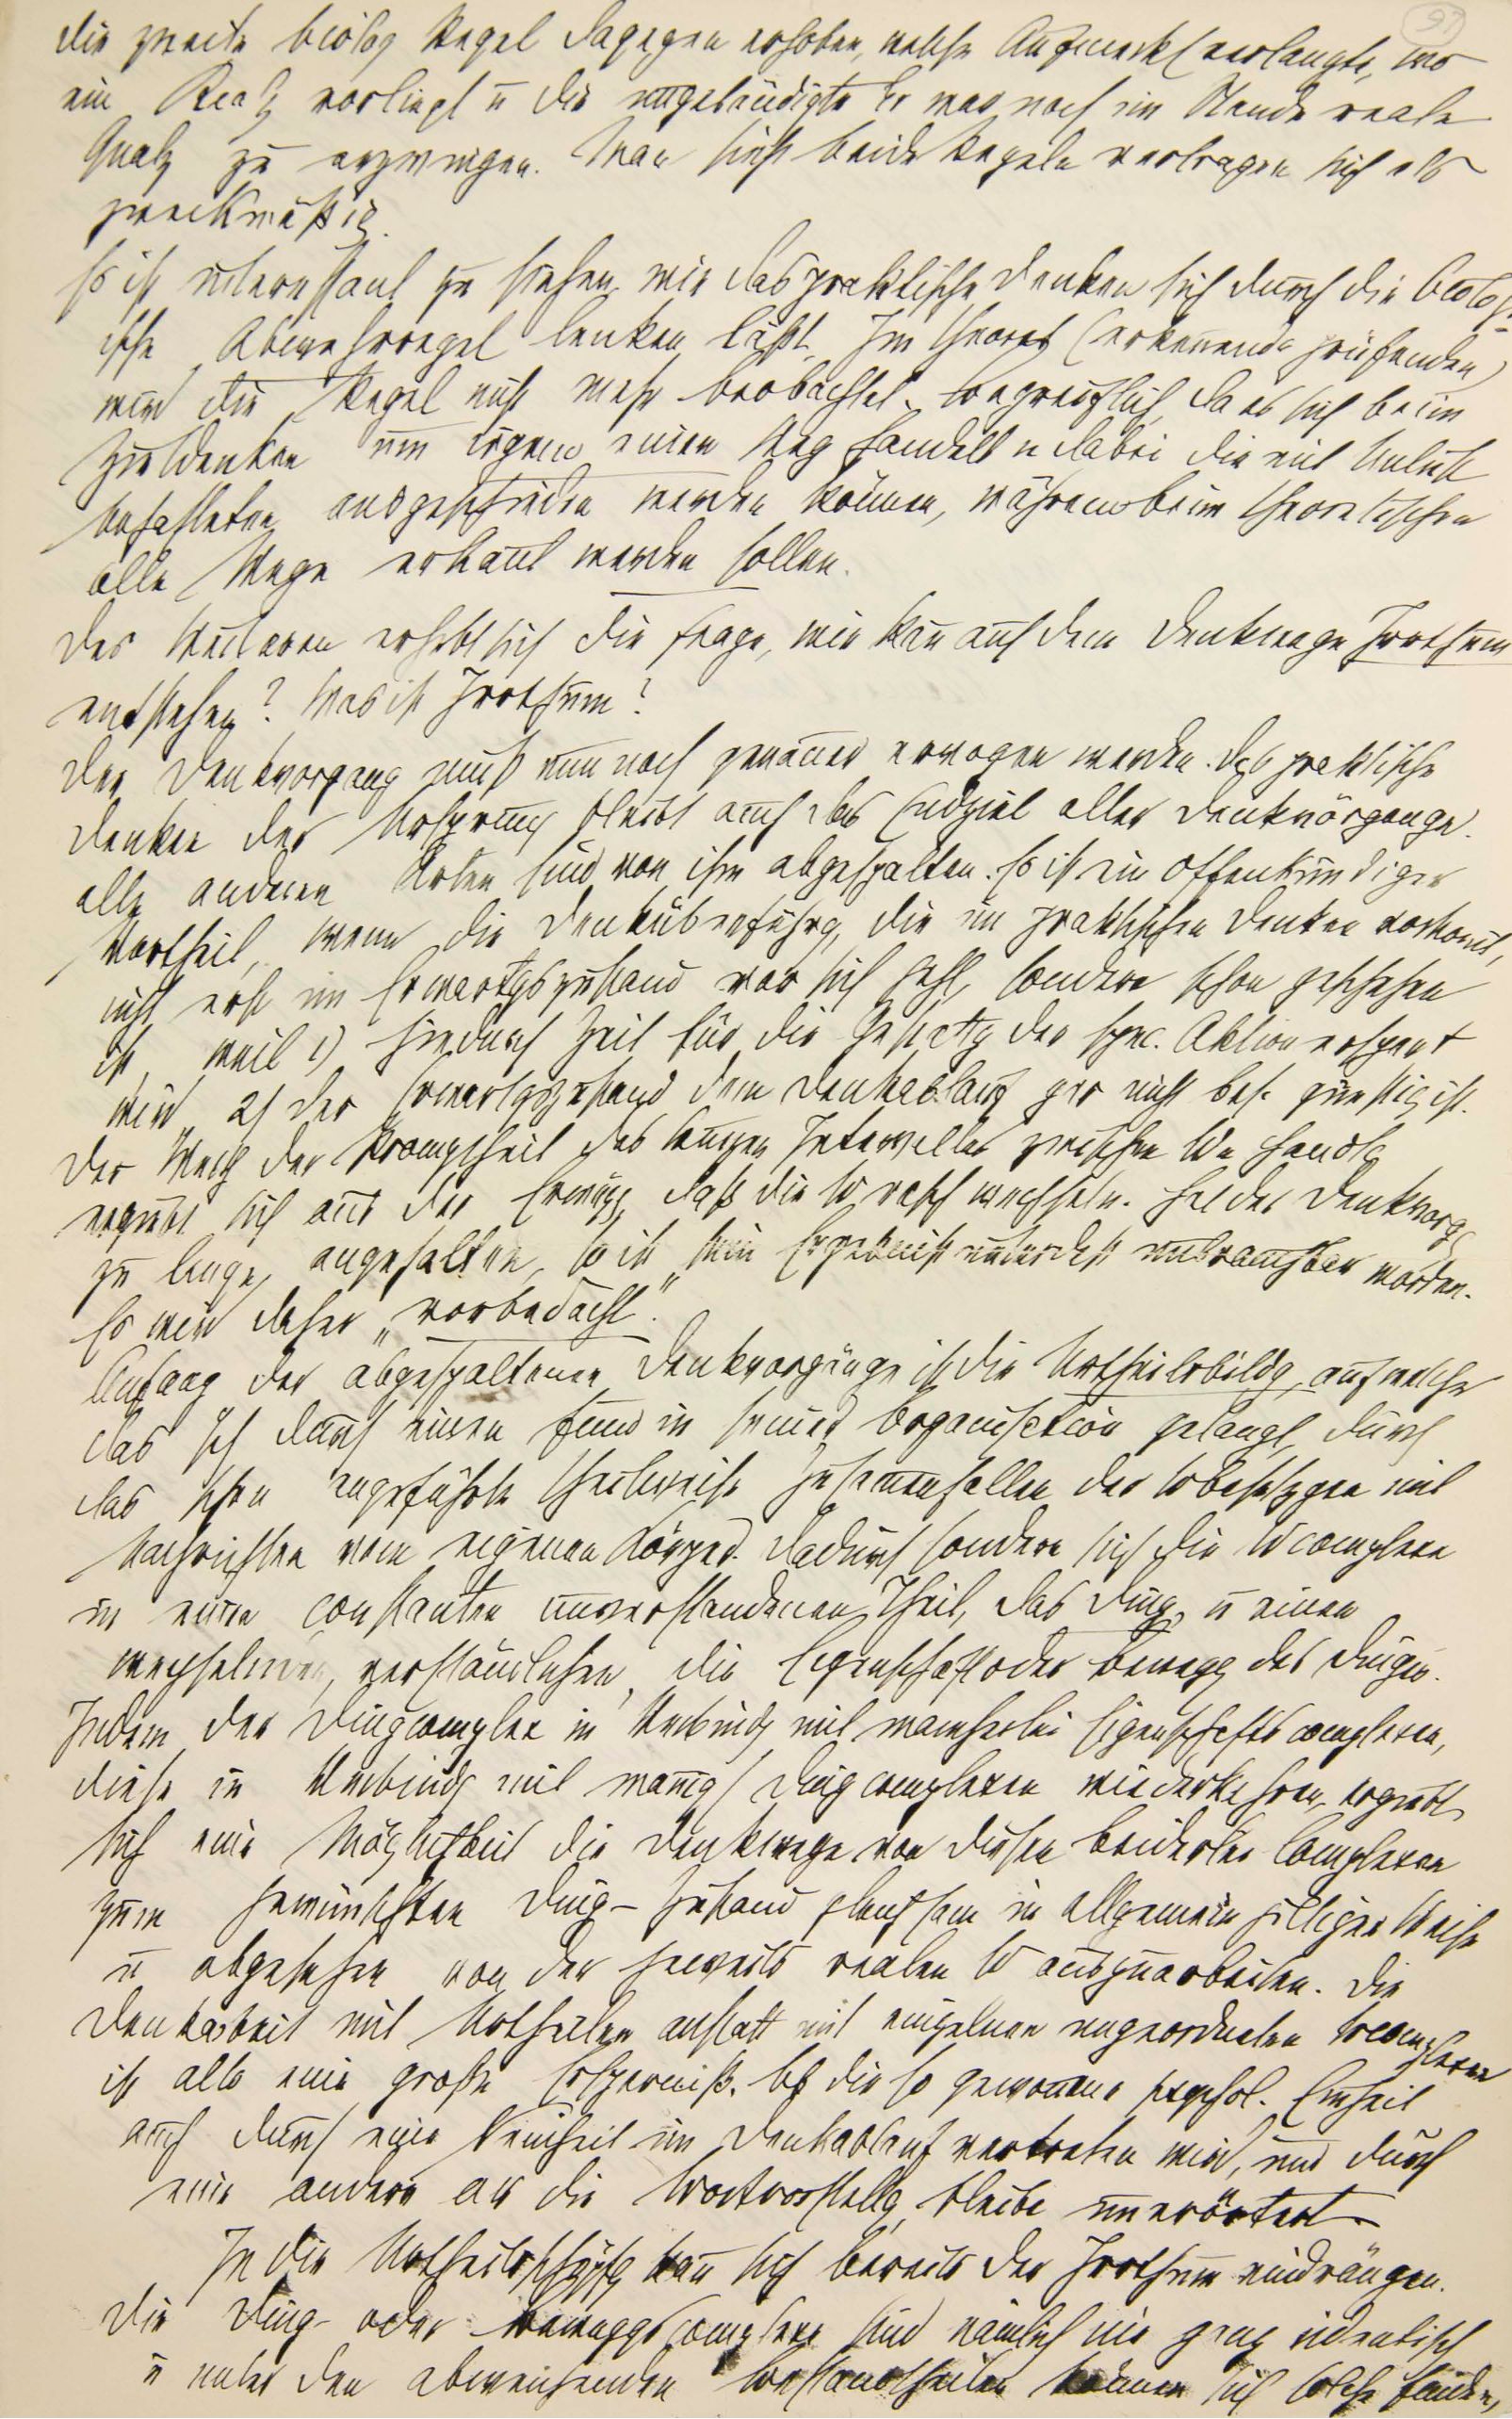 97
die zweite biolog Regel dagegen erhoben, welche Aufmerks verlangte, wo
ein Rea Z vorliegt u die ungebändigte Er war noch im Stande reale
Qualz zu erzwingen. Man sieht beide Regeln vertragen sich als
zweckmäßig.
Es ist interessant zu sehen, wie das praktische Denken sich durch die biolog-
ische Abwehrregel lenken läßt. Im theoret (erkennend prüfenden)
wird die Regel nicht mehr beobachtet. Begreiflich, da es sich beim
Zieldenken um irgend einen Weg handelt u dabei die mit Unlust
behafteten ausgeschieden werden können, während beim theoretischen
alle Wege erkannt werden sollen.
Des Weiteren erhebt sich die Frage, wie kan̄ auf dem Denkwege Irrthum
entstehen? Was ist Irrthum?
Der Denkvorgang muß nun noch genauer erwogen werden. Das praktische
Denken der Ursprung bleibt auch das Endziel aller Denkvorgänge.
alle anderen Arten sind von ihm abgespalten. Es ist ein offenkundiger
Vortheil, wenn die Denküberführg, die im praktischen Denken vorkom̄t,
nicht erst im Erwartgszustand vor sich geht, sondern schon geschehen
ist, weil 1) hiedurch Zeit für die Gestaltg der spec. Aktion erspart
wird, 2) der Erwartgszustand dem Denkablauf gar nicht bes. günstig ist.
Der Werth der Promptheit des kurzen Intervalles zwischen W u Handlg
ergiebt sich aus der Erwägg, daß die W rasch wechseln. Hat der Denkvorg
zu lange angehalten, so ist sein Ergebniß unterdeß unbrauchbar worden.
Es wird daher „vorbedacht".
Anfang der abgespaltenen Denkvorgänge ist die Urtheilsbildg, auf welche
das Ich durch einen Fund in seiner Organisation gelangt, durch
das schon angeführte theilweise Zusam̄enfallen der Wbesetzgen mit
Nachrichten vom eigenen Körper. Dadurch sondern sich die Wcomplexe
in einen constanten unverstandenen Theil, das Ding, u einen
wechselnden, verständlichen, die Eigenschaft oder Bewegg des Dinges.
Indem der Dingcomplex in Verbindg mit mancherlei Eigenschaftscomplexen,
diese in Verbindg mit mannigf Dingcomplexen wiederkehren, ergiebt
sich eine Möglichkeit die Denkwege von diesen beiderlei Complexen
zum gewünschten Ding-Zustand gleichsam in allgemein giltiger Weise
u abgesehen von der jeweils realen W auszuarbeiten. Die
Denkarbeit mit Urtheilen anstatt mit einzelnen ungeordneten Wcomplexen
ist also eine große Ersparniß. Ob die so gewonnene psychol. Einheit
auch durch eine N einheit im Denkablauf vertreten wird, und durch
eine andere als die Wortvorstellg, bleibe unerörtert.
In die Urtheilsschöpfg kan̄ sich bereits der Irrthum eindrängen.
Die Ding- oder Beweggscomplexe sind nämlich nie ganz identisch
u unter den abweichenden Bestandtheilen können sich solche finden,